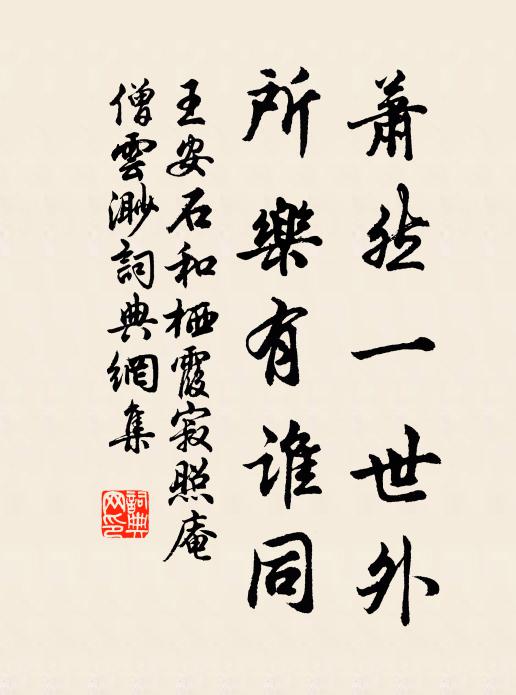 蕭然一世外
所樂有誰同
王安石和栖霞寂照庵
僧雲渺詞典網集
詞典
网印